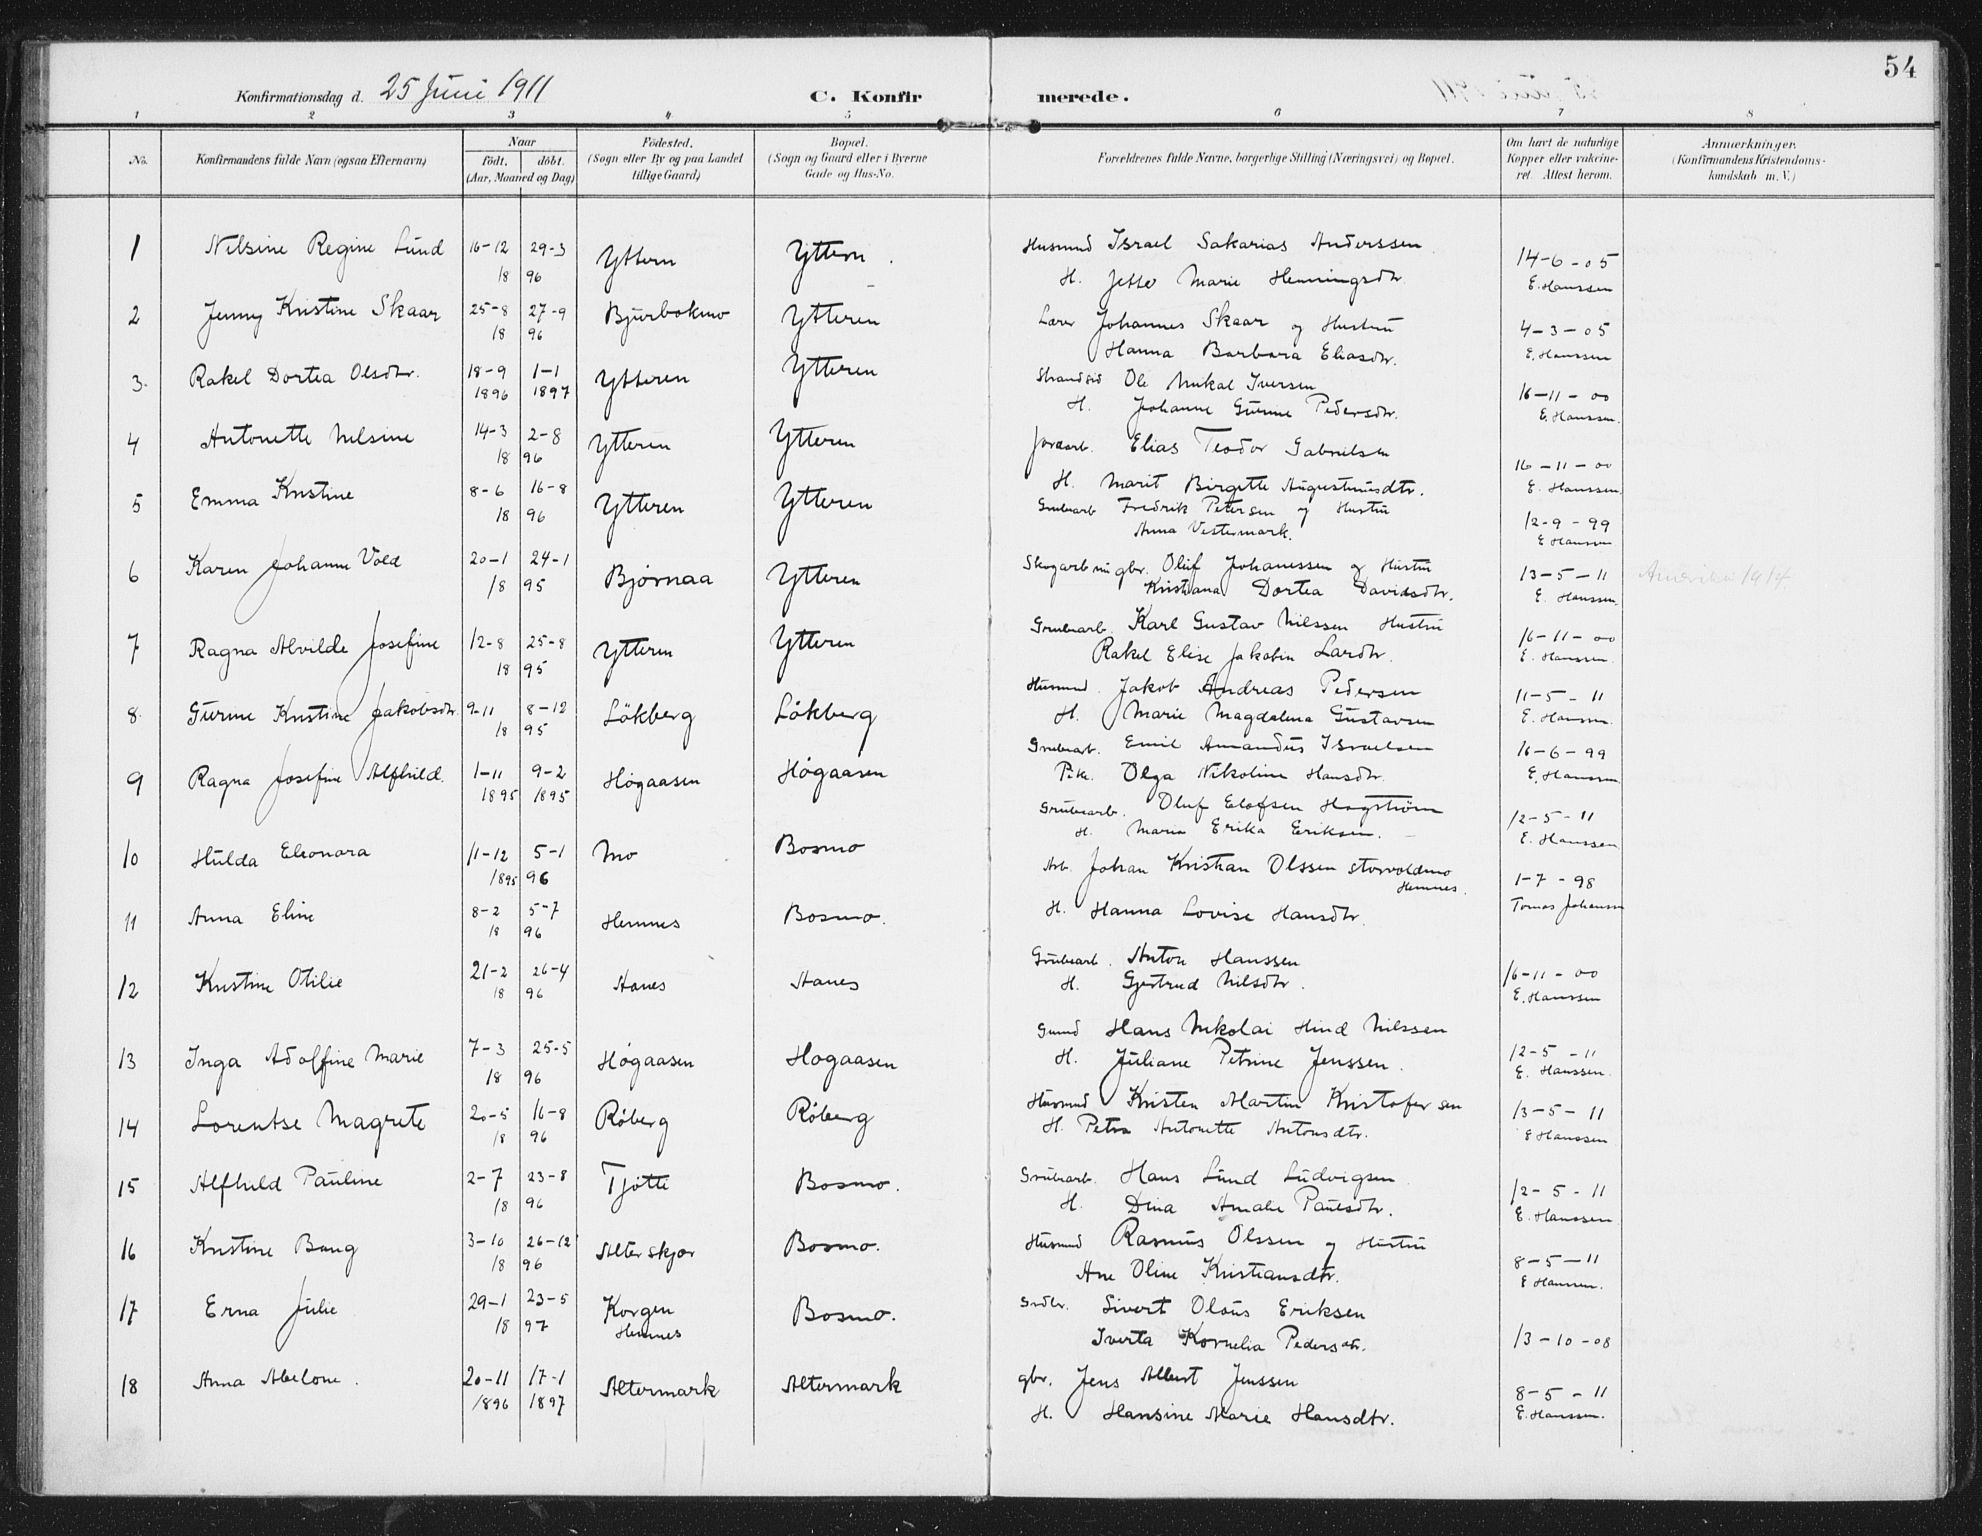 54
Konfirmationsdag d. 25 Juni 1911 C. Konfir merede.
1 2 3 4 5 6 7 8
No. Konfirmandens fulde Navn (ogsaa Efternavn) Naar födt. döbt. (Aar, Maaned og Dag) Födested. (Sogn eller By og paa Landet tillige Gaard) Bopæl. (Sogn og Gaard eller i Byerne Gade og Hus-No. Forældrenes fulde Navne, borgerlige Stilling (Næringsvei) og Bopæl. Om havt de naturlige Kopper eller vakcineret. Attest herom. Anmærkninger. (Konfirmandens Kristendomskundskab m. V.)
1 Nilsine Regine Lund 16-12 29-3 Yttern Yttern. Husmnd Israel Sakarias Anderssen 14-6-05
18 96 H. Jette Marie Henningsdtr. E. Hanssen
2 Jenny Kristine Skaar 25-8 27-9 Bjurbækmo Ytteren Lærer Johannes Skaar og Hustru 4-3-05
18 96 Hanna Barbara Eliasdtr. E. Hanssen
3. Rakel Dortea Olsdtr. 18-9 1-1 Ytteren Ytteren Strandsid Ole Mikal Iversen 16-11-00
1896 1897 H. Johanne Gurine Pedersdtr. E. Hanssen.
4 Antonette Nilsine 14-3 2-8 Ytteren Ytteren Jordarb. Elias Teodor Gabrielsen 16-11-00
18 96 H. Marit Birgitte Augustinusdtr. E. Hanssen
5 Emma Kristine 8-6 16-8 Ytteren Ytteren Grubearb Fredrik Petersen og Hustru 12-9-99
18 96 Anna Vestermark. E Hanssen
6 Karen Johanne Vold 20-1 24-1 Bjørnaa Ytteren Skogarb og gbr. Oluf Johanessen og Hustru 13-5-11 Amerika 1914.
18 95 Kristiana Dortea Davidsdtr. E. Hanssen.
7 Ragna Alvilde Josefine 12-8 25-8 Ytteren Ytteren Grubearb. Karl Gustav Nilssen Hustru 16-11-00
18 95 Rakel Elise Jakobin Larsdtr. E. Hanssen.
8. Gurine Kristine Jakobsdtr. 9-11 8-12 Lökberg Lökberg Husmnd. Jakob Andreas Pedersen 11-5-11
18 95 H. Marie Magdalena Gustavsen E. Hanssen.
9 Ragna Josefine Alfhild. 1-11 9-2 Høgaasen Høgaasen Grubearb. Emil Amandus Israelsen 16-6-99
1895 1895 Pike. Olga Nikoline Hansdtr. E. Hanssen
10 Hulda Eleonora 11-12 5-1 Mo Bosmo Grubearb. Oluf Elofsen Hagstrøm 12-5-11
1895 96 H. Maria Erika Eriksen. E. Hanssen
11 Anna Eline 8-2 5-7 Hemnes Bosmo. Arb. Johan Kristian Olssen Storvoldmo Hemnes. 1-7-98
18 96 H. Hanna Lovise Hansdtr. Tomas Johansen
12 Kristine Otilie 21-2 26-4 Aanes Aanes Grubearb. Anton Hanssen 16-11-00
18 96 H. Gjertrud Nilsdtr. E. Hanssen
13 Inga Adolfine Marie 7-3 25-5 Høgaasen Høgaasen Gmnd Hans Nikolai Hind Nilssen 12-5-11
18 96 H. Juliane Petrine Jenssen. E. Hanssen.
14 Lorentse Magrete 20-5 16-8 Røberg Røberg Husmnd Kristen Martin Kristofersen 13-5-11
18 96 H. Petra Antonette Antonsdtr. E Hanssen
15 Alfhild Pauline 2-7 23-8 Tjøtte Bosmo. Grubearb. Hans Lund Ludvigsen 12-5-11
18 96 H. Dina Amalie Paulsdtr. E. Hanssen
16 Kristine Bang 3-10 26-12 Alterskjær Bosmo. Husmnd Rasmus Olssen og Hustru 8-5-11
18 96 Ane Oline Kristiansdtr. E Hanssen.
17 Erna Julie 29-1 23-5 Korgen Bosmo. Grdbr. Sivert Olaus Eriksen
18 97 Hemnes Iverta Kornelia Pedersdtr. 13-10-08
18 Anna Abelone. 20-11 17-1 Altermark Altermark gbr. Jens Albert Jenssen 8-5-11
1896 1897 H. Hansine Marie Hansdtr. E. Hanssen.